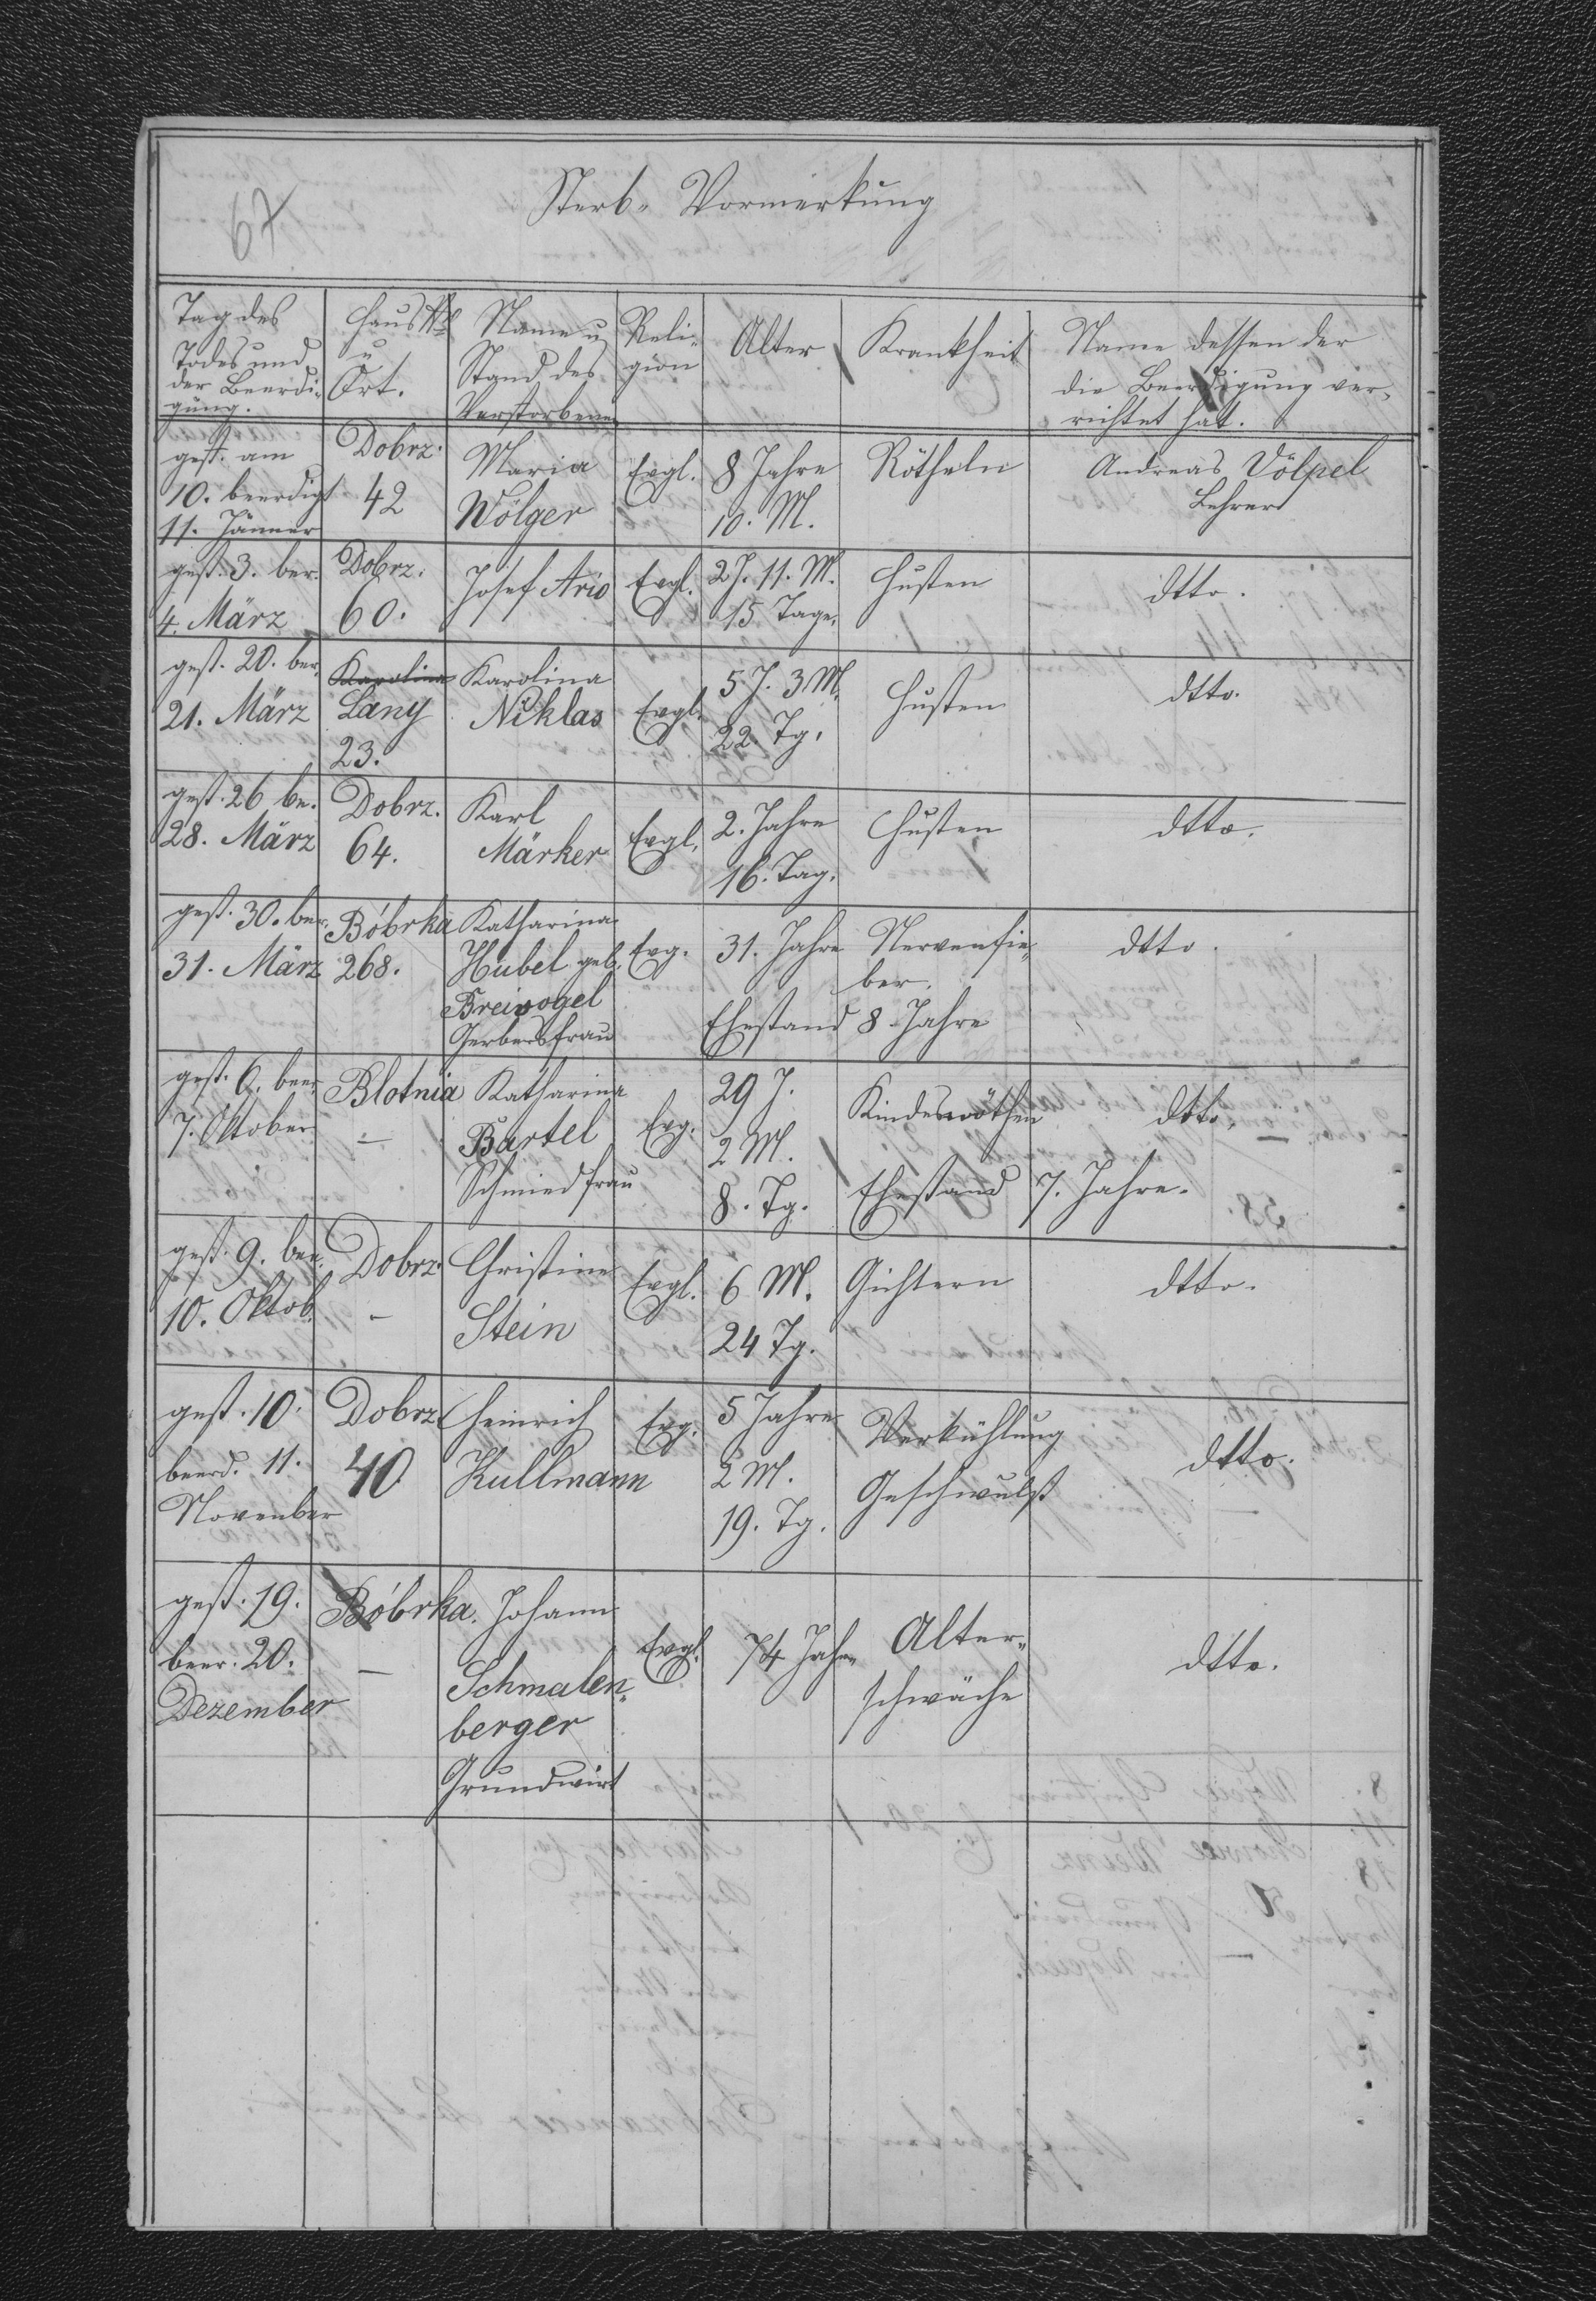 67
Sterb- Vormerkung
Tag des
Todes und
der Beerdi-
gung.
Haus No
u
Ort.
Name u
Stand des
Verstorbenen
Reli-
gion
Alter
Krankheit
Name dessen der
die Beerdigung ver-
richtet hat.
gest. am
10. beerdigt
11. Jänner
Dobrz.
42
Maria
Wölger
Evgl.
8 Jahre
10. M.
Rötheln
Andreas Völpel
Lehrer
gest. 3. ber.
4. März
Dobrz.
60.
Josef Ario
Evgl.
2 J. 11. M.
15 Tage.
Husten
dtto.
gest. 20. ber.
21. März
Karolina
Lany
23.
Karolina
Niklas
Evgl.
5 J. 3 M.
22. Tg.
Husten
dtto.
gest. 26 be.
28. März
Dobrz.
64.
Karl
Märker
Evgl.
2. Jahre
16. Tag.
Husten
dtto.
gest. 30. ber.
31. März
Bóbrka
268.
Katharina
Hubel geb.
Breivogel
Gerbersfrau
Evg.
31. Jahre
Ehestand 8 Jahre
Nervenfie-
ber.
dtto.
gest. 6. beer.
7. Oktober
Blotnia
-
Katharina
Bartel
Schmiedfrau
Evg.
29 J.
2 M.
8. Tg.
Kindesnöthen
Ehestand 7. Jahre.
dtto.
gest. 9. bee.
10. Oktob.
Dobrz.
-
Christine
Stein
Evgl.
6 M.
24 Tg.
Gichtern
dtto.
gest. 10.
beerd. 11.
November
Dobrz.
40
Heinrich
Kullmann
Evg.
5 Jahre
2 M.
19. Tg.
Verkühlung
Geschwulst
dtto.
gest. 19.
beer. 20.
Dezember
Bóbrka.
-
Johann
Schmalen-
berger
Grundwirt
Evgl.
74 Jahre
Alter-
schwäche
dtto.